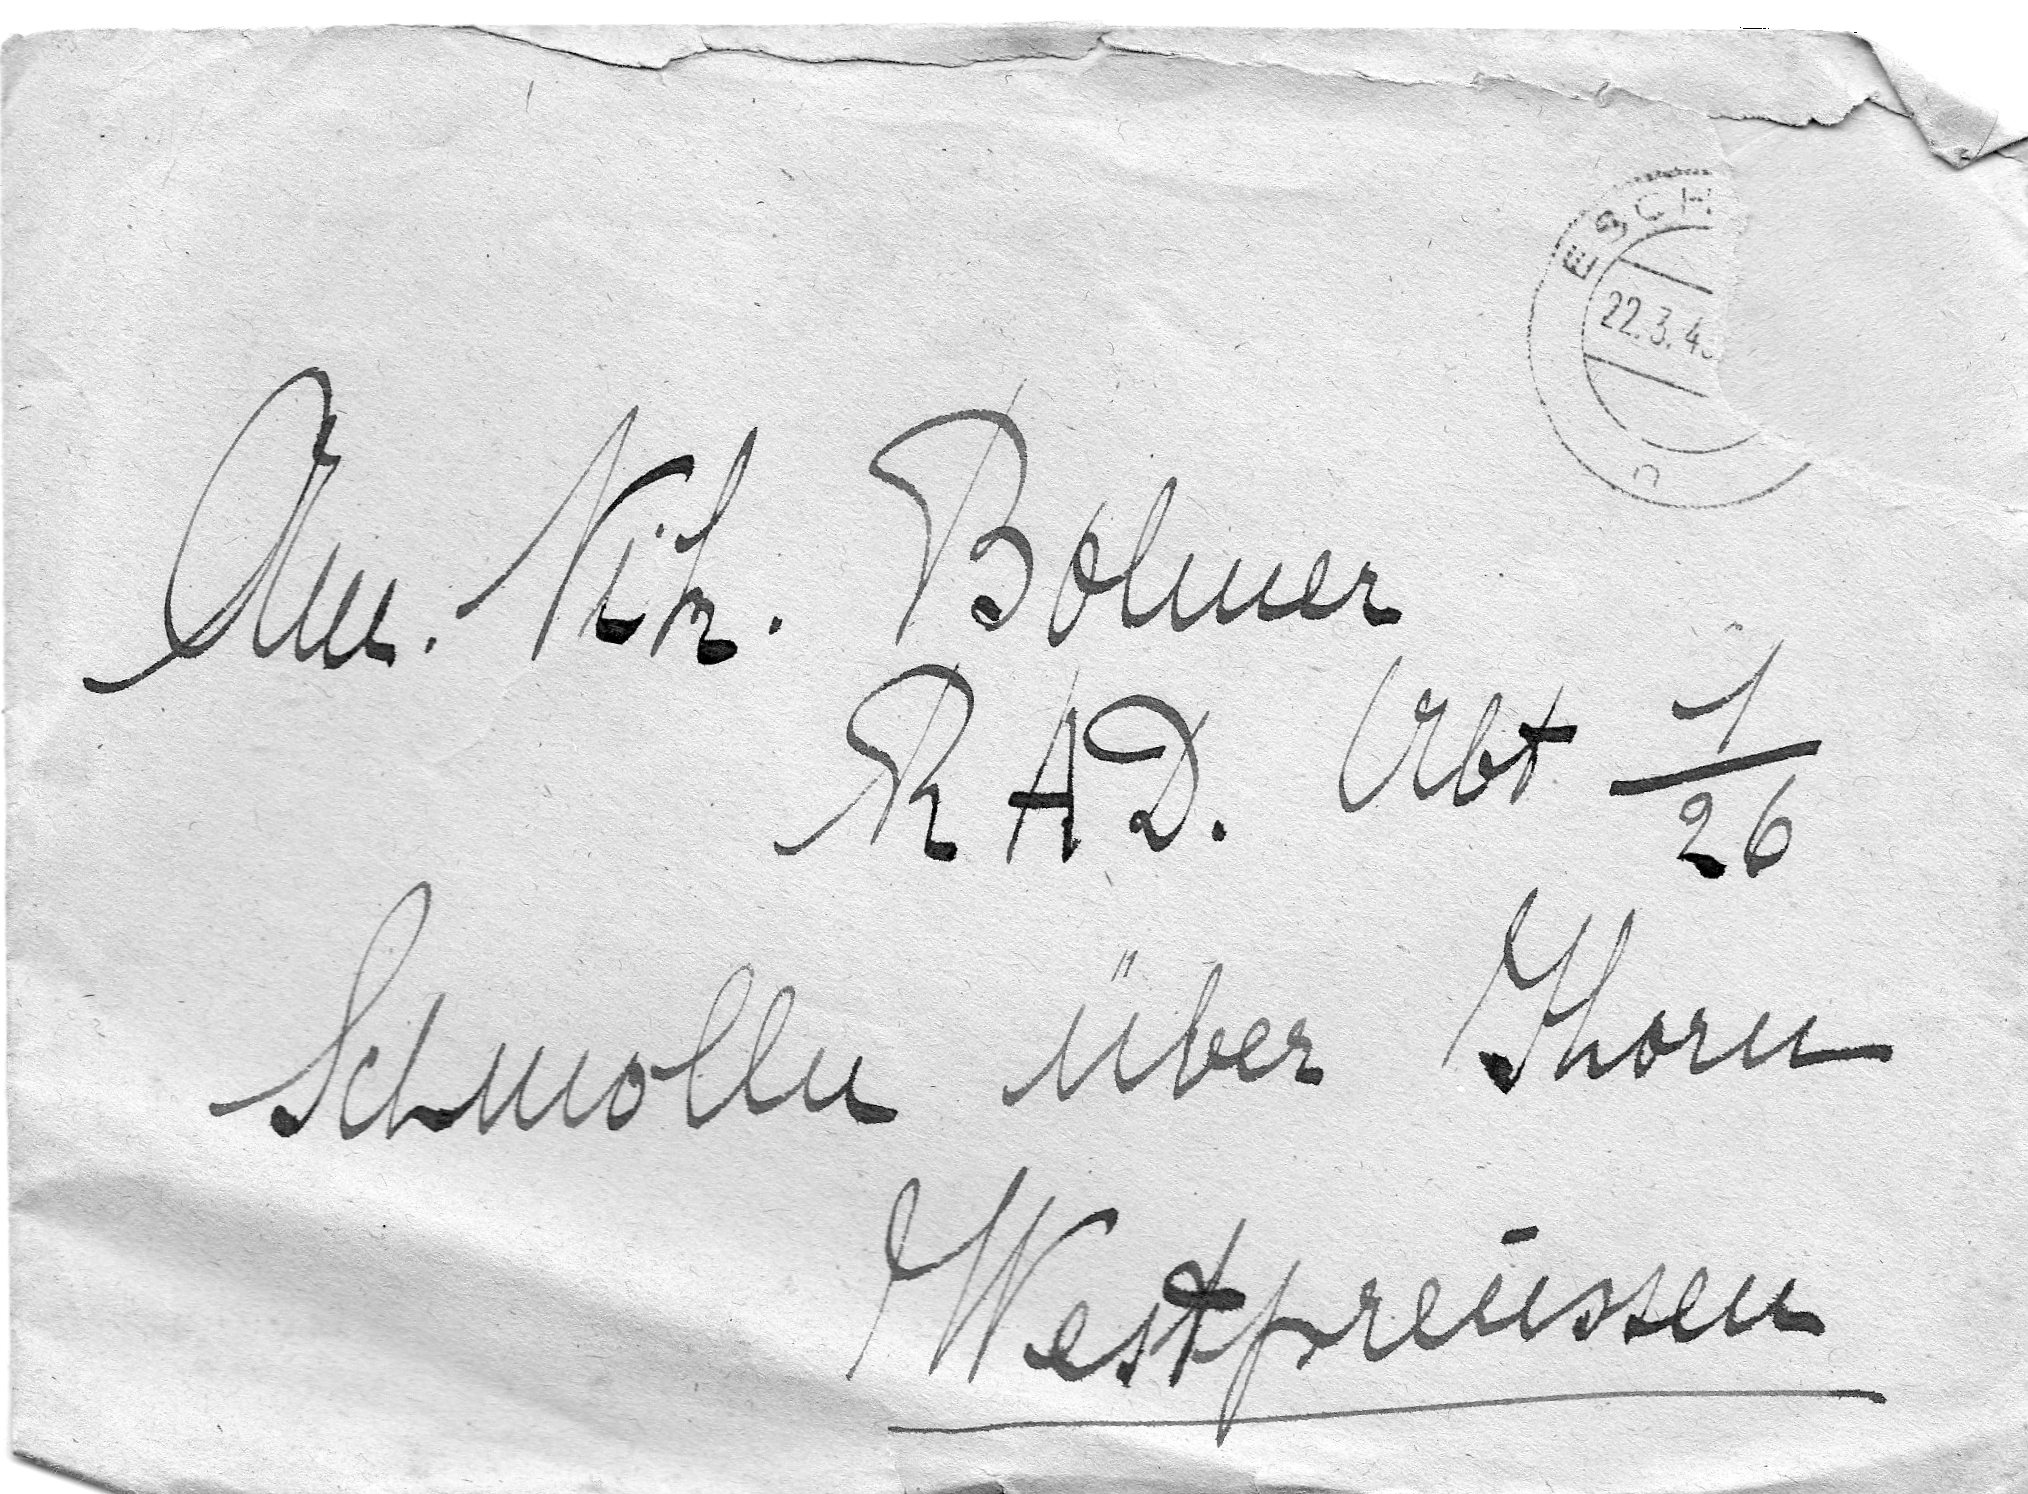 ESCH
22.3.4
Am. Nik. Bolmer
RAD. Abt 1/26
Schmolln über Thorn
Westpreussen